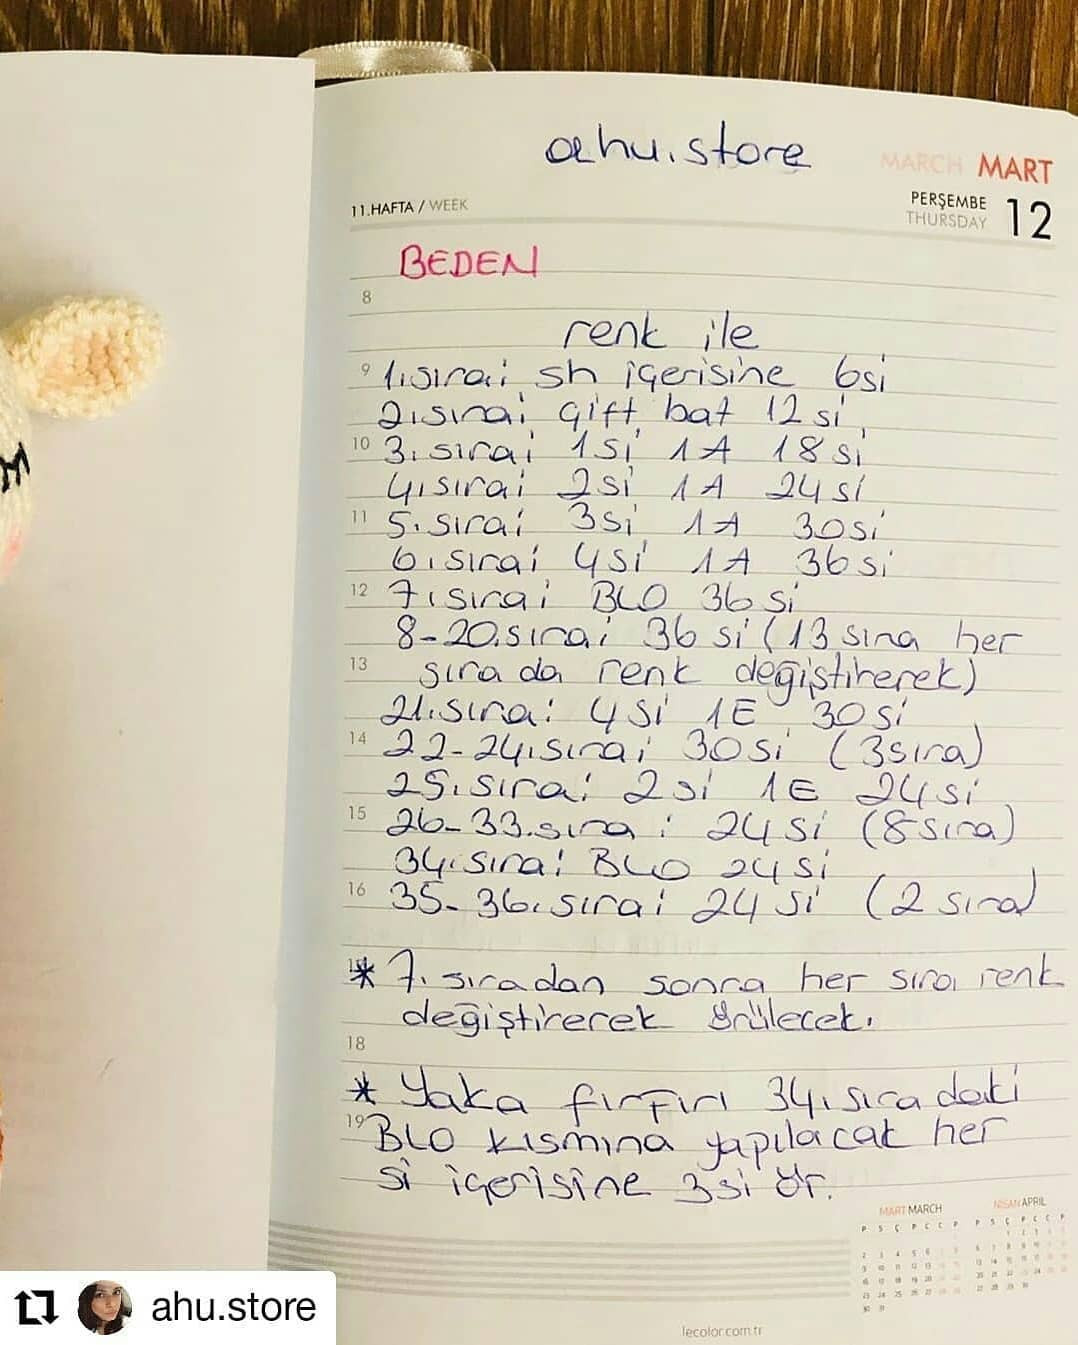 ahu.store
MARCH MART
11.HAFTA / WEEK
PERŞEMBE
THURSDAY
12
BEDEN
8
renk ile
9 1.sıra: sh içerisine 6si
2.sıra: çift bat 12 si
10 3.sıra: 1si 1A 18 si
4.sıra: 2si 1A 24 si
11 5.sıra: 3si 1A 30si
6.sıra: 4si 1A 36si
12 7.sıra: BLO 36 si
8-20.sıra: 36 si (13 sıra her
13 sırada renk değiştirerek)
21.sıra: 4si 1E 30si
14 22-24.sıra: 30si (3sıra)
25.sıra: 2si 1E 24si
15 26-33.sıra: 24si (8sıra)
34.sıra: BLO 24 si
16 35-36.sıra: 24 si (2 sıra)
* 7. sıradan sonra her sıra renk
değiştirerek örülecek.
18
* Yaka fırfırı 34.sıradaki
19 BLO kısmına yapılacak her
si içerisine 3si ör.
MART MARCH
NİSAN APRIL
lecolor.com.tr
ahu.store